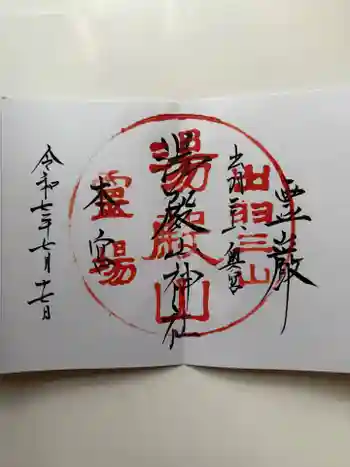 霊巌
出羽三山
出羽奥宮
湯殿山神社
湯殿山
本宮
霊場
令和七年七月十七日